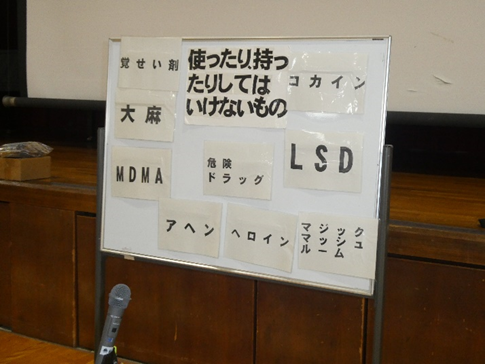 覚せい剤
使ったり、持っ
たりしては
いけないもの
コカイン
大麻
MDMA
危険
ドラッグ
LSD
アヘン
ヘロイン
マジック
マッシュ
ルーム